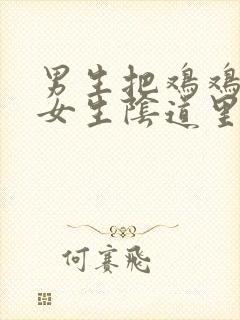 男生把鸡鸡
女生陰道里
何赛飛